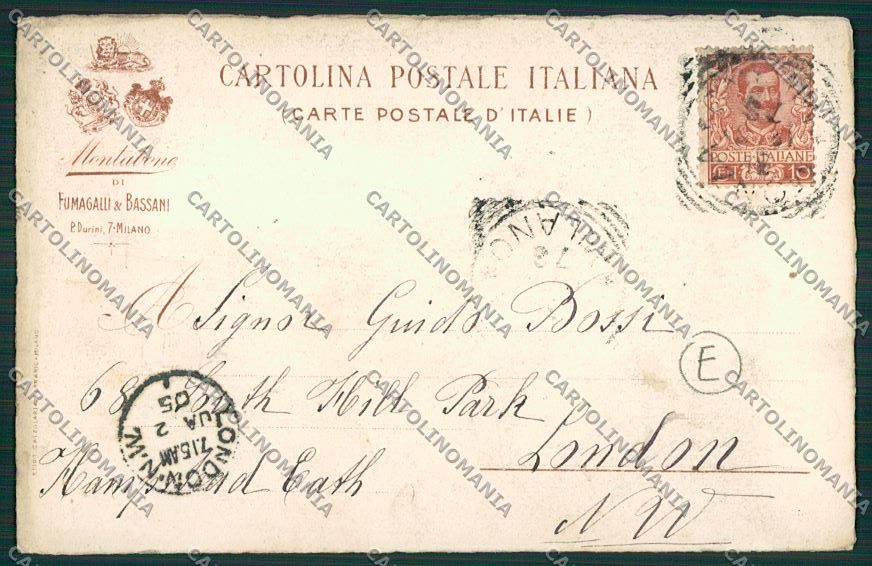 CARTOLINA POSTALE ITALIANA
(CARTE POSTALE D'ITALIE)
Montabone
DI
FUMAGALLI & BASSANI
P. Durini, 7-MILANO
POSTE ITALIANE
10
MILANO
A Signor Guido Bossi
68 South Hill Park
London
Hampstead Eath
N W
E
LONDON. N.W.
7.15 AM
JA 2
05
CARTOLINOMANIA